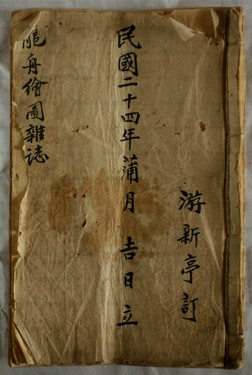 游新亭訂
民國二十四年蒲月 吉日立
舟繪圖雜誌